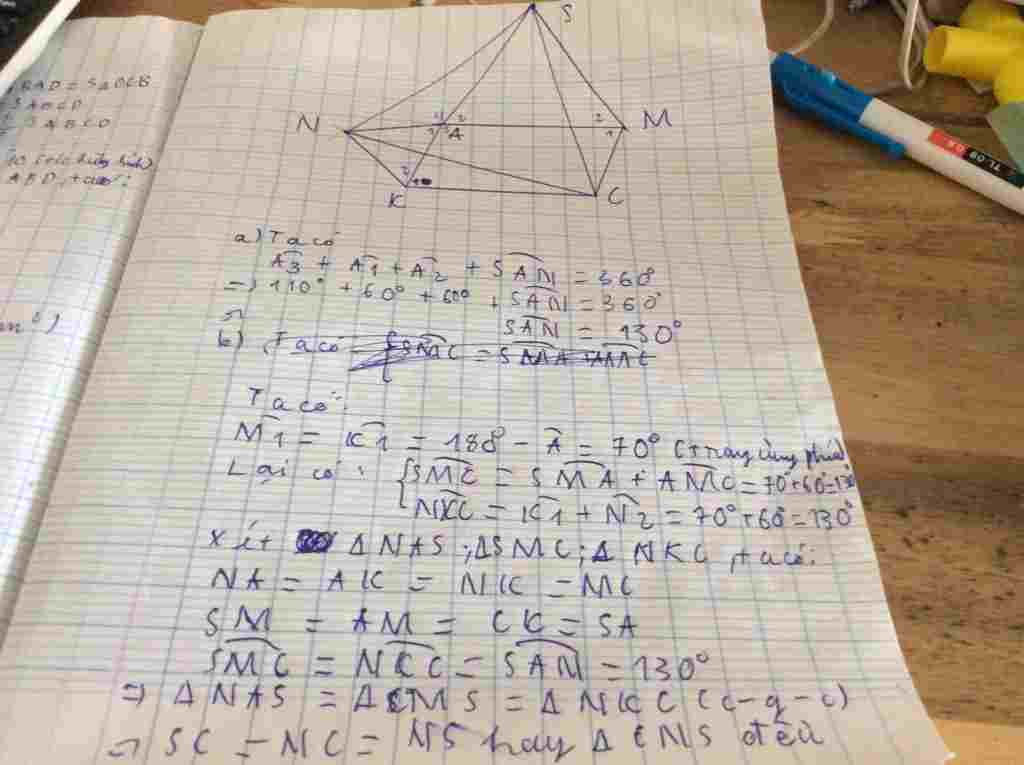 S
N
M
A
K
C
a) Ta có
A3 + A1 + A2 + SAN = 360°
=> 110° + 60° + 60° + SAN = 360°
SAN = 130°
b) Ta có
Ta có:
M1 = K1 = 180 - A = 70° (trong cùng phía)
Lại có: { SMC = SMA + AMC = 70° + 60 = 130
NKC = K1 + N2 = 70° + 60 = 130°
Xét Δ NAS; ΔSMC; Δ NKC, ta có:
NA = AK = NK = MC
SM = AM = CK = SA
SMC = NKC = SAN = 130°
=> Δ NAS = Δ CMS = Δ NKC (c-g-c)
=> SC = NC = NS hay Δ CNS đều